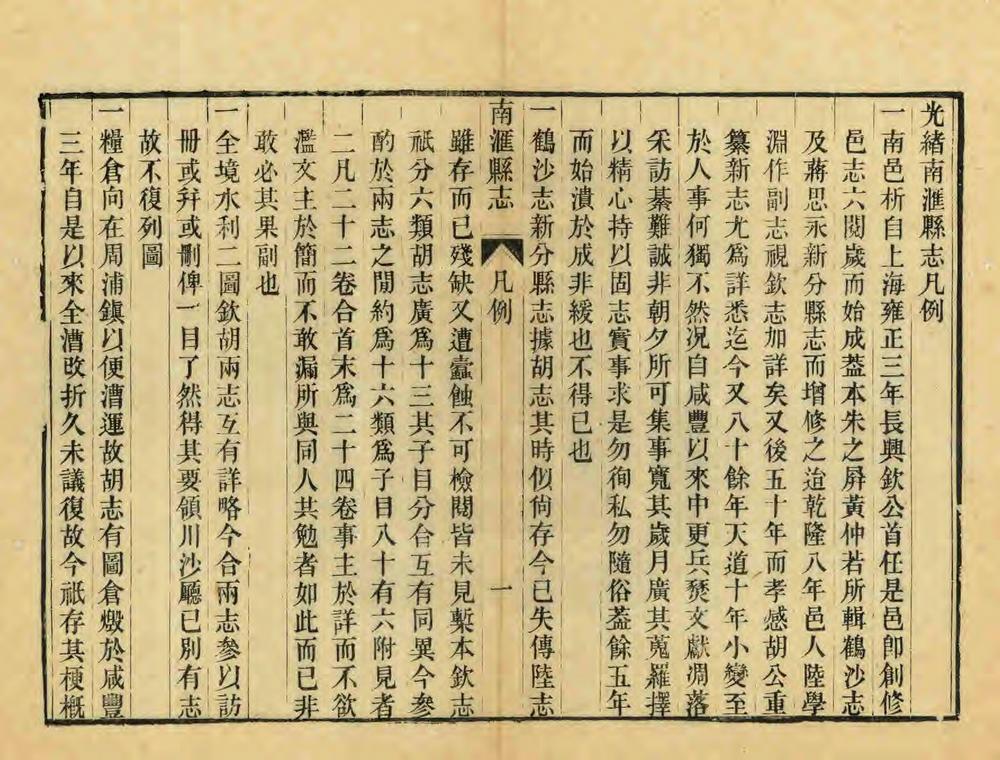 光緒南滙縣志凡例
一南邑析自上海雍正三年長興欽公首任是邑卽創修
邑志六閱歲而始成葢本朱之屏黃仲若所輯鶴沙志
及蔣思永新分縣志而增修之迨乾隆八年邑人陸學
淵作副志視欽志加詳矣又後五十年而孝感胡公重
纂新志尤爲詳悉迄今又八十餘年天道十年小變至
於人事何獨不然況自咸豐以來中更兵燹文獻凋落
采訪綦難誠非朝夕所可集事寬其歲月廣其蒐羅擇
以精心持以固志實事求是勿徇私勿隨俗葢餘五年
而始潰於成非緩也不得已也
一鶴沙志新分縣志據胡志其時似尙存今已失傳陸志
南滙縣志 凡例 一
雖存而已殘缺又遭蠧蝕不可檢閱皆未見槧本欽志
祇分六類胡志廣爲十三其子目分合互有同異今參
酌於兩志之閒約爲十六類爲子目八十有六附見者
二凡二十二卷合首末爲二十四卷事主於詳而不欲
濫文主於簡而不敢漏所與同人共勉者如此而已非
敢必其果副也
一全境水利二圖欽胡兩志互有詳略今合兩志參以訪
冊或幷或刪俾一目了然得其要領川沙廳已別有志
故不復列圖
一糧倉向在周浦鎭以便漕運故胡志有圖倉燬於咸豐
三年自是以來全漕改折久未議復故今祇存其梗概